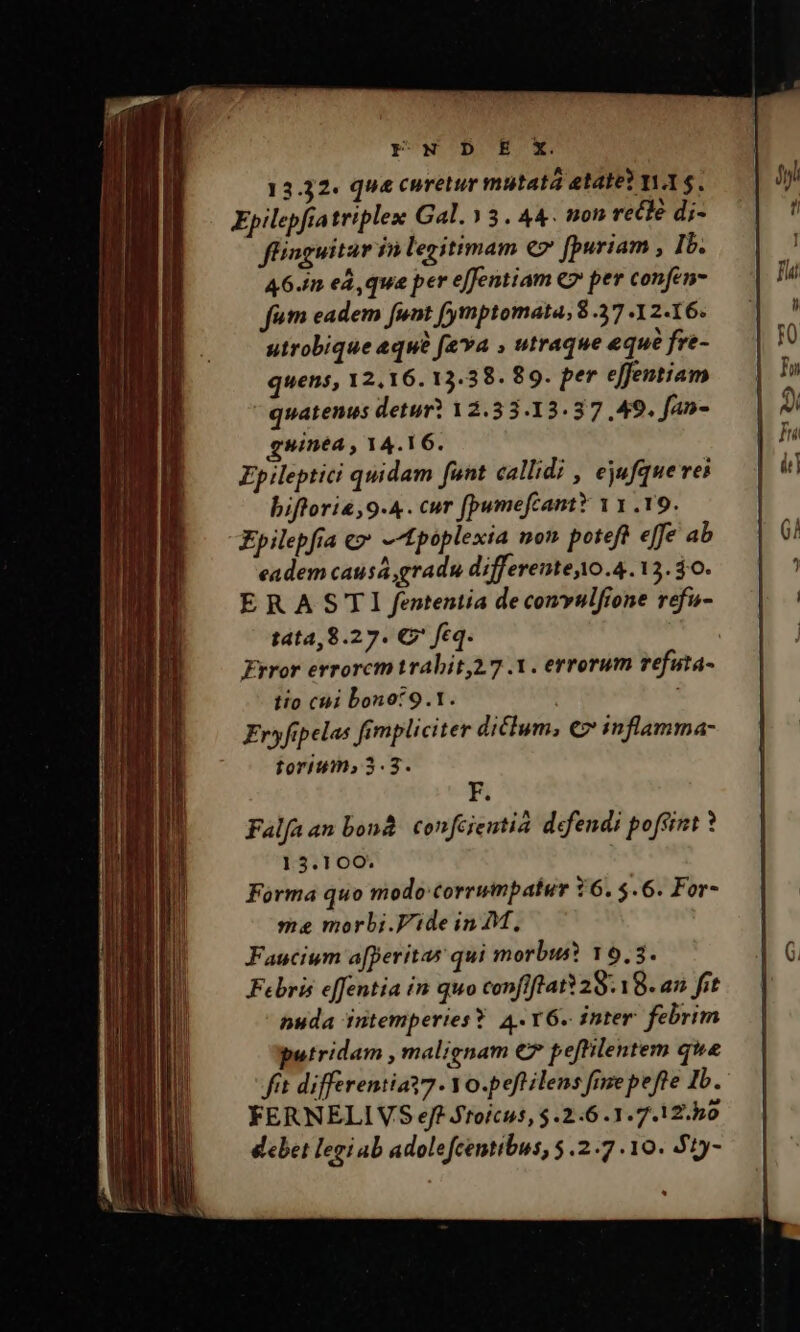 INDEX.
13.32. quæ curetur mutatâ ætate? 11.15.
Epilepſia triplex Gal. 13. 44. non rectè di-
ſtinguitur in legitimam & ſpuriam, Ib.
46. in eâ, quæ per eſſentiam & per conſen-
ſum eadem ſunt ſymptomata, 8.37.12.16.
utrobique æquè ſæva, utraque æquè fre-
quens, 12.16. 13.38. 89. per eſſentiam
quatenus detur? 12.33.13.37.49. ſan-
guinea, 14.16.
Epileptici quidam ſunt callidi, ejuſque rei
hiſtoriæ, 9.4. cur ſpumeſcant? 11.19.
Epilepſia & Apoplexia non poteſt eſſe ab
eadem causâ, gradu differente, 10.4.13.30.
ERASTI ſententia de convulſione refu-
tata, 8.27. & ſeq.
Error errorem trahit, 27.1. errorum refuta-
tio cui bono? 9.1.
Eryſipelas ſimpliciter dictum, & inflamma-
torium, 3.3.
F.
Falſa an bonâ conſcientiâ defendi poſſint?
13.100.
Forma quo modo corrumpatur? 6. 5.6. For-
mæ morbi. Vide in M.
Faucium aſperitas qui morbus? 19.3.
Febris eſſentia in quo conſiſtat? 28.18. an ſit
nuda intemperies? 4.16. inter febrim
putridam, malignam & peſtilentem quæ
ſit differentia? 7.10. peſtilens ſine peſte Ib.
FERNELIVS eſt Stoicus, 5.2.6.1.7.12. nō
debet legi ab adoleſcentibus, 5.2.7.10. Sty-